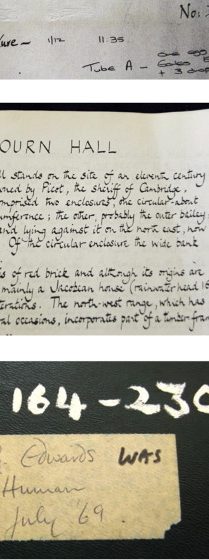 No:
1/12 11.35
one egg
Tube A -
+ 3 drop
OURN HALL
ll stands on the site of an eleventh century
ned by Picot, the sheriff of Cambridge,
mprised two enclosures, the circular about
umference; the other, probably the outer bailey
and lying against it on the north east, now
Of the circular enclosure the wide bank
is of red brick and although its origins are
mainly a Jacobean house (rainwater head 16
terations. The north-west range, which has
al occasions, incorporates part of a timber-fram
164-230
Edwards WAS
Human
July '69.